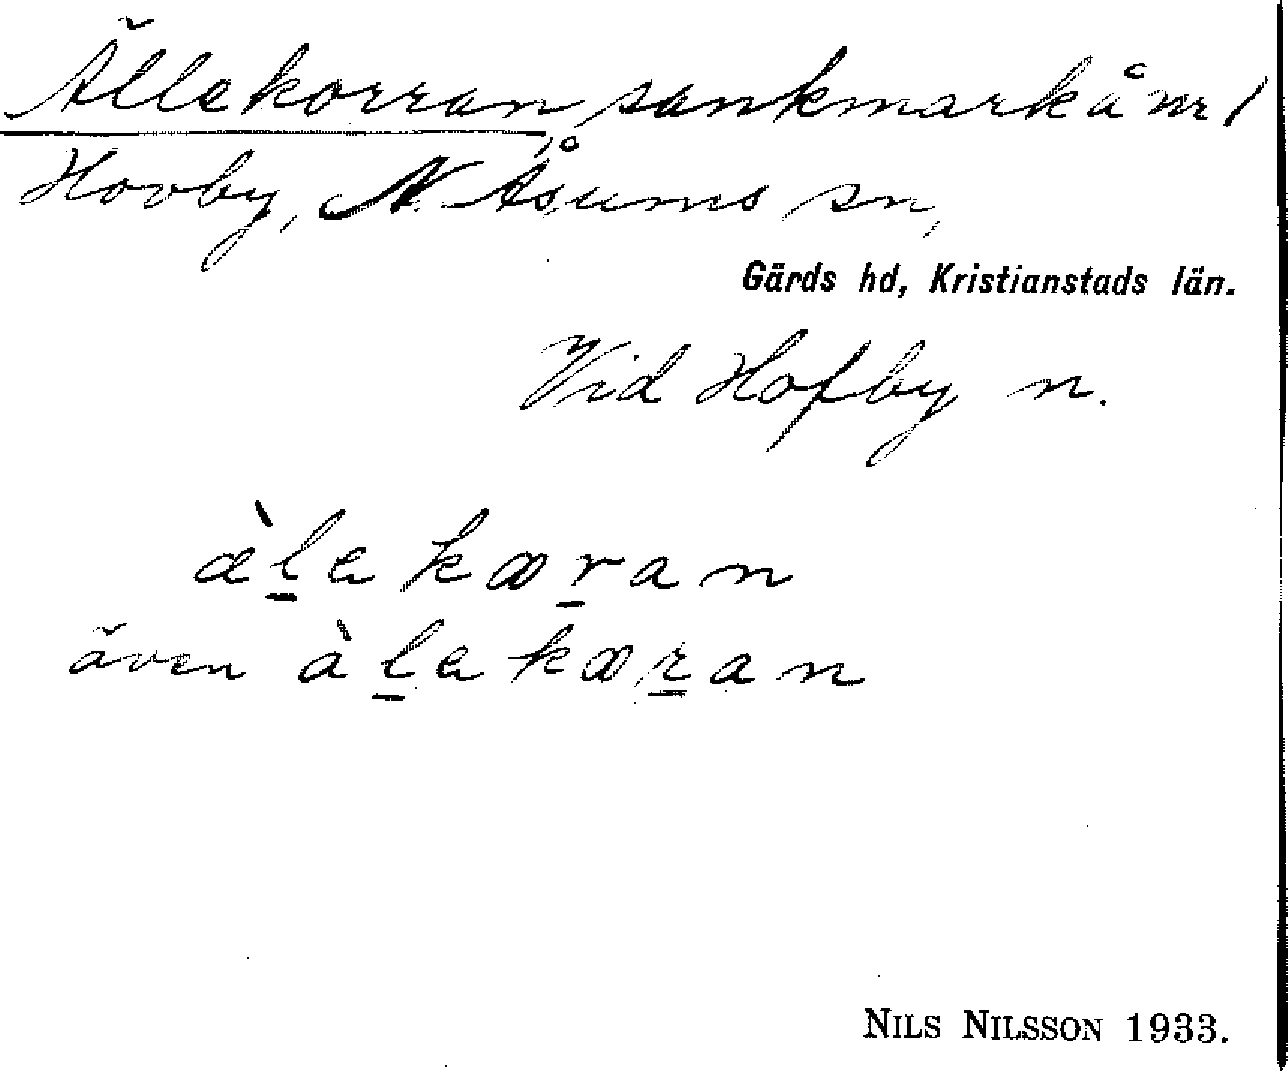 Ällekorran, sankmark å nr 1
Hovby, N. Åsums sn,
Gärds hd, Kristianstads län.
Vid Hofby n.
àl̲a kær̲an
även àl̲a kær̲an
NILS NILSSON 1933.